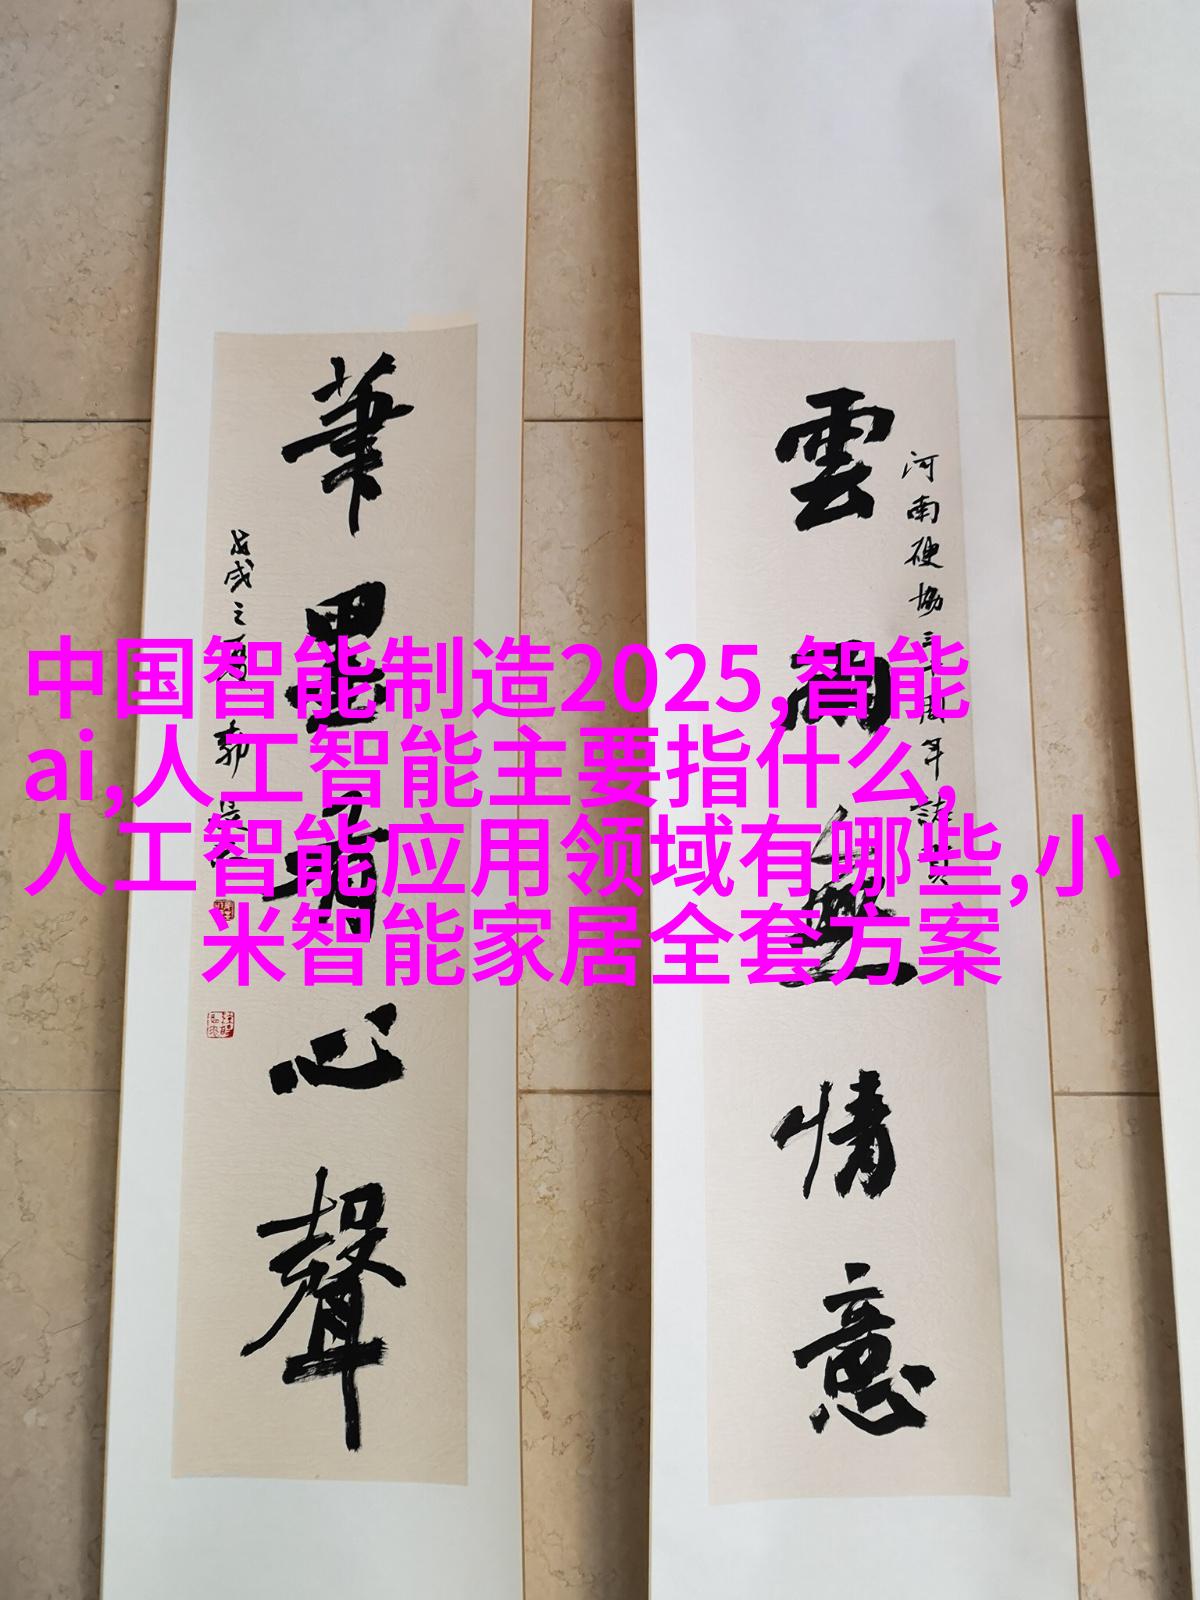 中国智能制造2025,智能
ai,人工智能主要指什么,
人工智能应用领域有哪些,小
米智能家居全套方案
雲雨無情意
河南硬協三十周年
筆墨有心聲
戊戌之夏